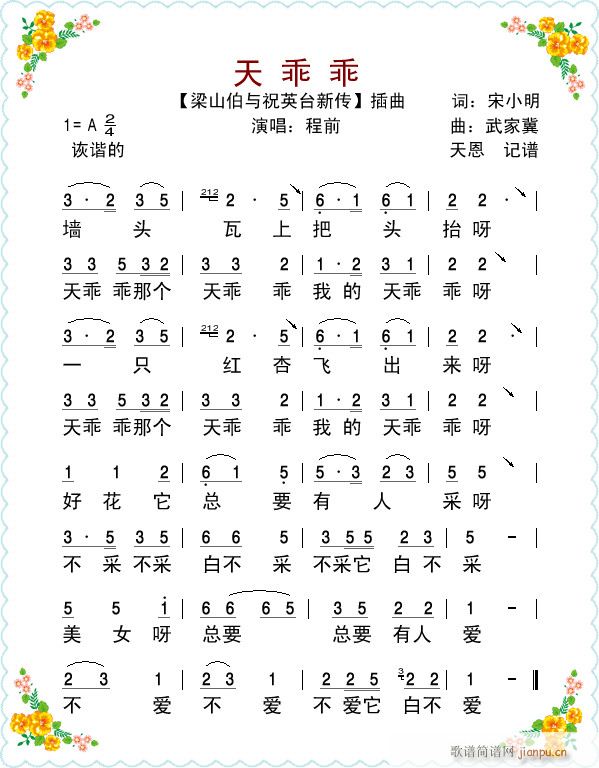 天 乖 乖
【梁山伯与祝英台新传】插曲 词：宋小明
1=A 2/4 演唱：程前 曲：武家冀
诙谐的 天恩 记谱
3 · 2 3 5 | 212 2 · 5 | 6 · 1 6 1 | 2 2 · |
墙 头 瓦 上 把 头 抬 呀
3 3 5 3 2 | 3 3 2 | 1 · 2 3 1 | 2 2 · |
天乖 乖那个 天乖 乖 我 的 天乖 乖 呀
3 · 2 3 5 | 212 2 · 5 | 6 · 1 6 1 | 2 2 · |
一 只 红 杏 飞 出 来 呀
3 3 5 3 2 | 3 3 2 | 1 · 2 3 1 | 2 2 · |
天乖 乖那个 天乖 乖 我 的 天乖 乖 呀
1 1 2 | 6 1 5 | 5 · 3 2 3 | 5 5 |
好 花 它 总 要 有 人 采 呀
3 · 5 3 5 | 6 6 5 | 3 5 5 6 5 | 5 - |
不 采 不采 白不 采 不采它 白 不 采
5 5 i | 6 6 6 6 5 | 3 3 5 2 2 | 1 - |
美 女 呀 总要 总要 有人 爱
2 3 1 | 2 3 1 | 2 2 5 3 2 2 | 1 - ‖
不 爱 不 爱 不 爱它 白不 爱
歌谱简谱网 jianpu.cn